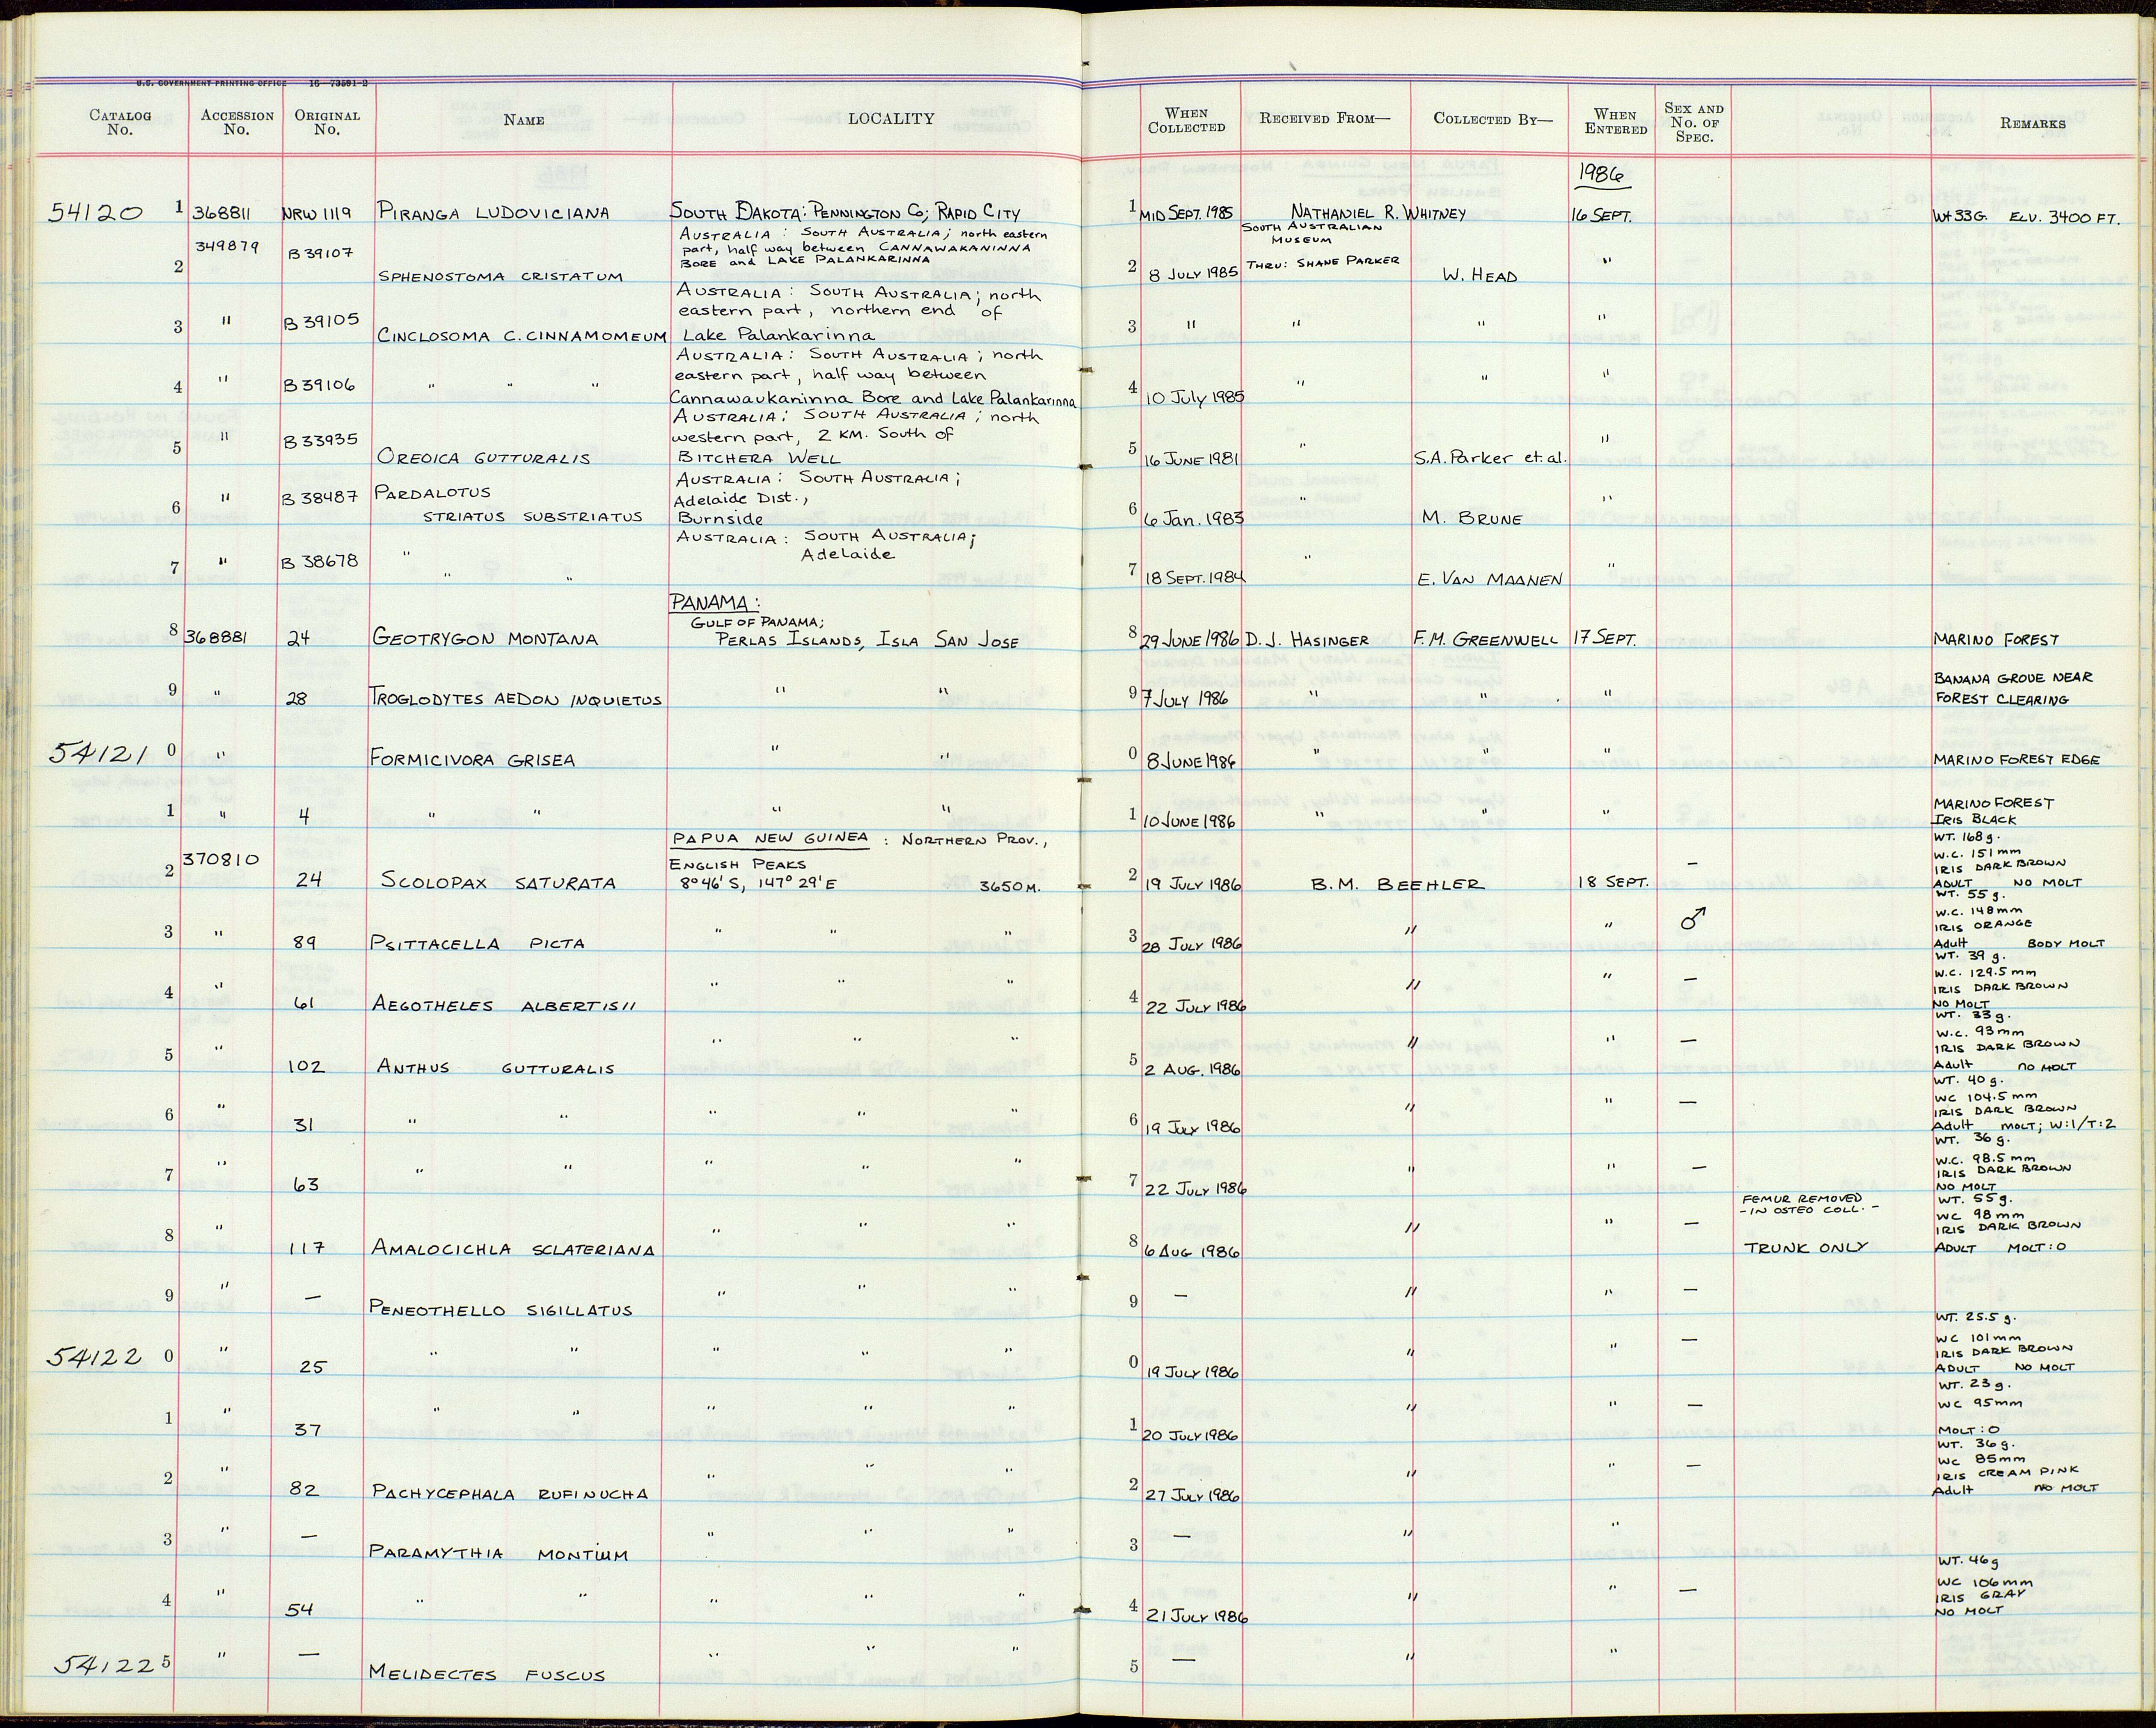 U.S. GOVERNMENT PRINTING OFFICE 16—73591-2
CATALOG No. ACCESSION No. ORIGINAL No. NAME LOCALITY WHEN COLLECTED RECEIVED FROM— COLLECTED BY— WHEN ENTERED SEX AND No. OF SPEC. REMARKS
1986
54120 1 368811 NRW 1119 PIRANGA LUDOVICIANA SOUTH DAKOTA: PENNINGTON CO; RAPID CITY 1 MID SEPT. 1985 NATHANIEL R. WHITNEY 16 SEPT. Wt 33G. ELV. 3400 FT.
349879 B 39107 AUSTRALIA: SOUTH AUSTRALIA; north eastern SOUTH AUSTRALIAN
part, half way between CANNAWAKANINNA MUSEUM
2 SPHENOSTOMA CRISTATUM BORE and LAKE PALANKARINNA 2 8 JULY 1985 THRU: SHANE PARKER W. HEAD "
AUSTRALIA: SOUTH AUSTRALIA; north
eastern part, northern end of
3 " B 39105 CINCLOSOMA C. CINNAMOMEUM Lake Palankarinna 3 " " " "
AUSTRALIA: SOUTH AUSTRALIA; north
eastern part, half way between
4 " B 39106 " " " Cannawaukaninna Bore and Lake Palankarinna 4 10 July 1985 " " "
AUSTRALIA: SOUTH AUSTRALIA; north
western part, 2 KM. South of
5 " B 33935 OREOICA GUTTURALIS BITCHERA WELL 5 16 JUNE 1981 " S.A. Parker et. al. "
AUSTRALIA: SOUTH AUSTRALIA;
6 " B 38487 PARDALOTUS Adelaide Dist.,
STRIATUS SUBSTRIATUS Burnside 6 6 Jan. 1983 " M. BRUNE "
AUSTRALIA: SOUTH AUSTRALIA;
7 " B 38678 " " " Adelaide 7 18 SEPT. 1984 " E. VAN MAANEN "
PANAMA:
GULF OF PANAMA;
8 368881 24 GEOTRYGON MONTANA PERLAS ISLANDS, ISLA SAN JOSE 8 29 JUNE 1986 D. J. HASINGER F.M. GREENWELL 17 SEPT. MARINO FOREST
BANANA GROVE NEAR
9 " 28 TROGLODYTES AEDON INQUIETUS " " 9 7 JULY 1986 " " " FOREST CLEARING
54121 0 " FORMICIVORA GRISEA " " 0 8 JUNE 1986 " " " MARINO FOREST EDGE
MARINO FOREST
1 " 4 " " " " 1 10 JUNE 1986 " " " IRIS BLACK
PAPUA NEW GUINEA: NORTHERN PROV., WT. 168 g.
370810 ENGLISH PEAKS W.C. 151 mm
IRIS DARK BROWN
2 24 SCOLOPAX SATURATA 8°46'S, 147°29'E 3650 M. 2 19 JULY 1986 B.M. BEEHLER 18 SEPT. — ADULT NO MOLT
WT. 55 g.
W.C. 148 mm
IRIS ORANGE
3 " 89 PSITTACELLA PICTA " " " 3 28 JULY 1986 " " ♂ Adult BODY MOLT
WT. 39 g.
W.C. 129.5 mm
IRIS DARK BROWN
4 " 61 AEGOTHELES ALBERTISII " " " 4 22 JULY 1986 " " — NO MOLT
WT. 33 g.
W.C. 93 mm
IRIS DARK BROWN
5 " 102 ANTHUS GUTTURALIS " " " 5 2 AUG. 1986 " " — Adult NO MOLT
WT. 40 g.
WC 104.5 mm
IRIS DARK BROWN
6 " 31 " " " " " 6 19 JULY 1986 " " — Adult MOLT; W:1/T:2
WT. 36 g.
W.C. 98.5 mm
IRIS DARK BROWN
7 " 63 " " " " " 7 22 JULY 1986 " " — NO MOLT
FEMUR REMOVED WT. 55 g.
-IN OSTEO COLL.- WC 98 mm
IRIS DARK BROWN
8 " 117 AMALOCICHLA SCLATERIANA " " " 8 6 AUG 1986 " " — TRUNK ONLY ADULT MOLT: 0
9 " — PENEOTHELLO SIGILLATUS " " " 9 — " " —
WT. 25.5 g.
WC 101 mm
IRIS DARK BROWN
54122 0 " 25 " " " " " 0 19 JULY 1986 " " — ADULT NO MOLT
WT. 23 g.
WC 95 mm
1 " 37 " " " " " 1 20 JULY 1986 " " — MOLT: 0
WT. 36 g.
WC 85 mm
IRIS CREAM PINK
2 " 82 PACHYCEPHALA RUFINUCHA " " " 2 27 JULY 1986 " " — Adult NO MOLT
3 " — PARAMYTHIA MONTIUM " " " 3 — " "
WT. 46 g
WC 106 mm
IRIS GRAY
4 " 54 " " " " " 4 21 JULY 1986 " " — NO MOLT
54122 5 " — MELIDECTES FUSCUS " " " 5 — " "